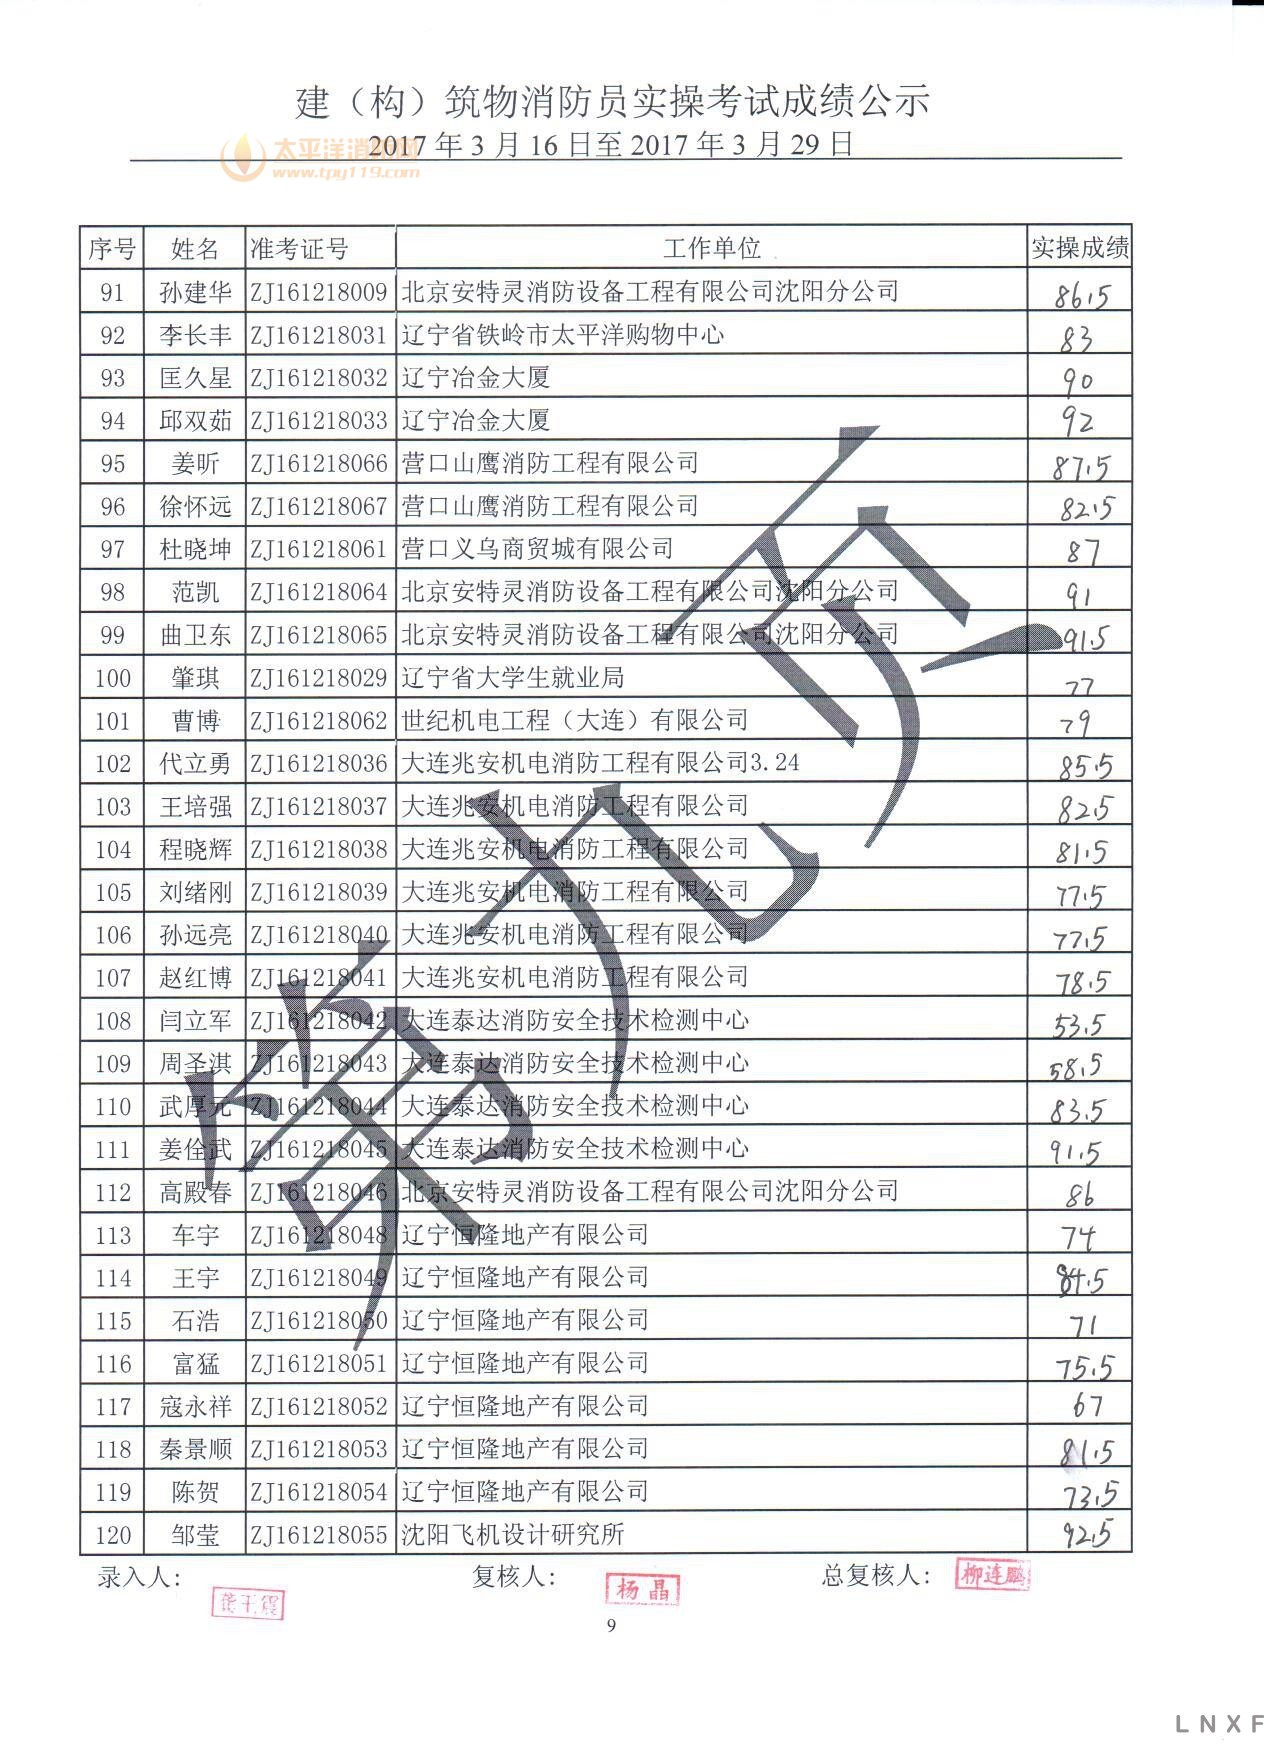 建（构）筑物消防员实操考试成绩公示
太平洋消防网
www.tpy119.com
2017 年 3 月 16 日至 2017 年 3 月 29 日
序号 姓名 准考证号 工作单位 实操成绩
91 孙建华 ZJ161218009 北京安特灵消防设备工程有限公司沈阳分公司 86.5
92 李长丰 ZJ161218031 辽宁省铁岭市太平洋购物中心 83
93 匡久星 ZJ161218032 辽宁冶金大厦 90
94 邱双茹 ZJ161218033 辽宁冶金大厦 92
95 姜昕 ZJ161218066 营口山鹰消防工程有限公司 87.5
96 徐怀远 ZJ161218067 营口山鹰消防工程有限公司 82.5
97 杜晓坤 ZJ161218061 营口义乌商贸城有限公司 87
98 范凯 ZJ161218064 北京安特灵消防设备工程有限公司沈阳分公司 91
99 曲卫东 ZJ161218065 北京安特灵消防设备工程有限公司沈阳分公司 91.5
100 肇琪 ZJ161218029 辽宁省大学生就业局 77
101 曹博 ZJ161218062 世纪机电工程（大连）有限公司 79
102 代立勇 ZJ161218036 大连兆安机电消防工程有限公司3.24 85.5
103 王培强 ZJ161218037 大连兆安机电消防工程有限公司 82.5
104 程晓辉 ZJ161218038 大连兆安机电消防工程有限公司 81.5
105 刘绪刚 ZJ161218039 大连兆安机电消防工程有限公司 77.5
106 孙远亮 ZJ161218040 大连兆安机电消防工程有限公司 77.5
107 赵红博 ZJ161218041 大连兆安机电消防工程有限公司 78.5
108 闫立军 ZJ161218042 大连泰达消防安全技术检测中心 53.5
109 周圣淇 ZJ161218043 大连泰达消防安全技术检测中心 58.5
110 武厚元 ZJ161218044 大连泰达消防安全技术检测中心 83.5
111 姜佺武 ZJ161218045 大连泰达消防安全技术检测中心 91.5
112 高殿春 ZJ161218046 北京安特灵消防设备工程有限公司沈阳分公司 86
113 车宇 ZJ161218048 辽宁恒隆地产有限公司 74
114 王宇 ZJ161218049 辽宁恒隆地产有限公司 84.5
115 石浩 ZJ161218050 辽宁恒隆地产有限公司 71
116 富猛 ZJ161218051 辽宁恒隆地产有限公司 75.5
117 寇永祥 ZJ161218052 辽宁恒隆地产有限公司 67
118 秦景顺 ZJ161218053 辽宁恒隆地产有限公司 81.5
119 陈贺 ZJ161218054 辽宁恒隆地产有限公司 73.5
120 邹莹 ZJ161218055 沈阳飞机设计研究所 92.5
第九页
录入人： 复核人： 杨晶 总复核人： 柳连鹏
9
LNXF